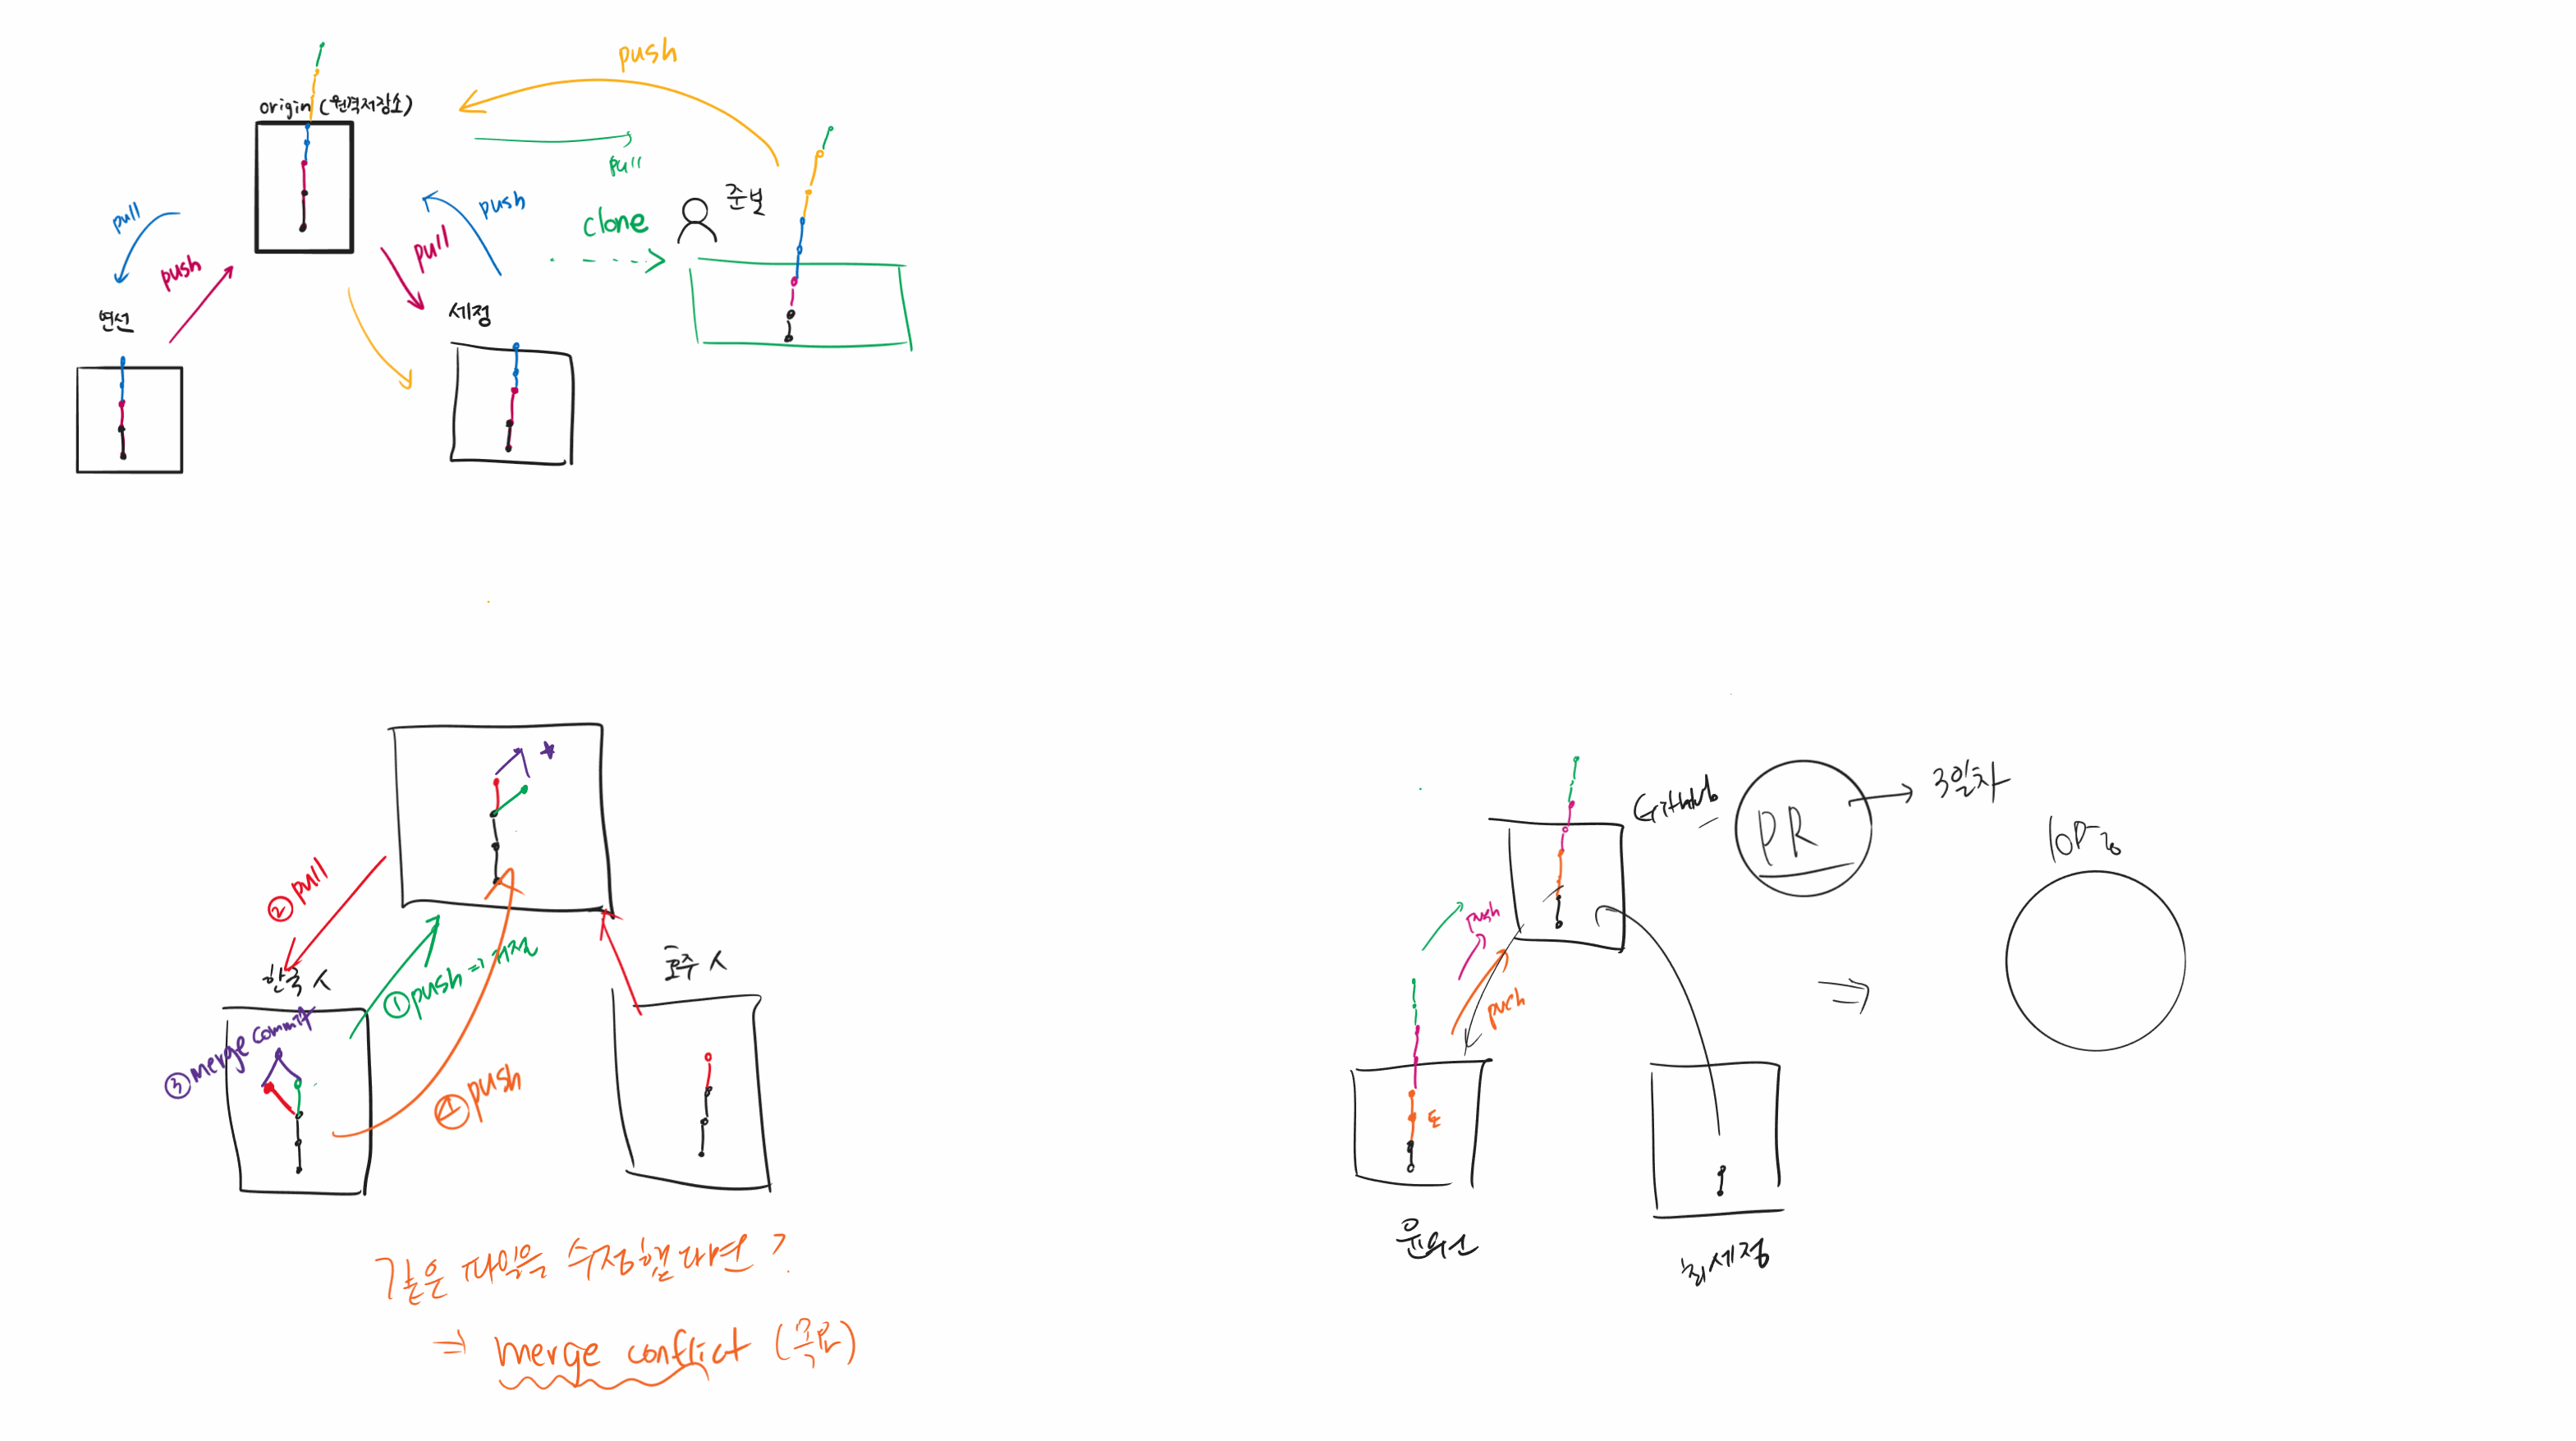 push
origin (원격저장소)
pull
준보
push
pull
clone
pull
push
연선
세정
② pull
① push => 거절
한국 시
호주 시
③ merge commit
④ push
같은 파일을 수정했다면?
⇒ merge conflict
GitHub
PR
3일차
push
push
최세정